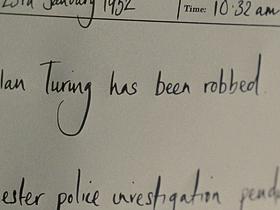 January 1952 Time: 10:32 am
lan Turing has been robbed.
ester police investigation